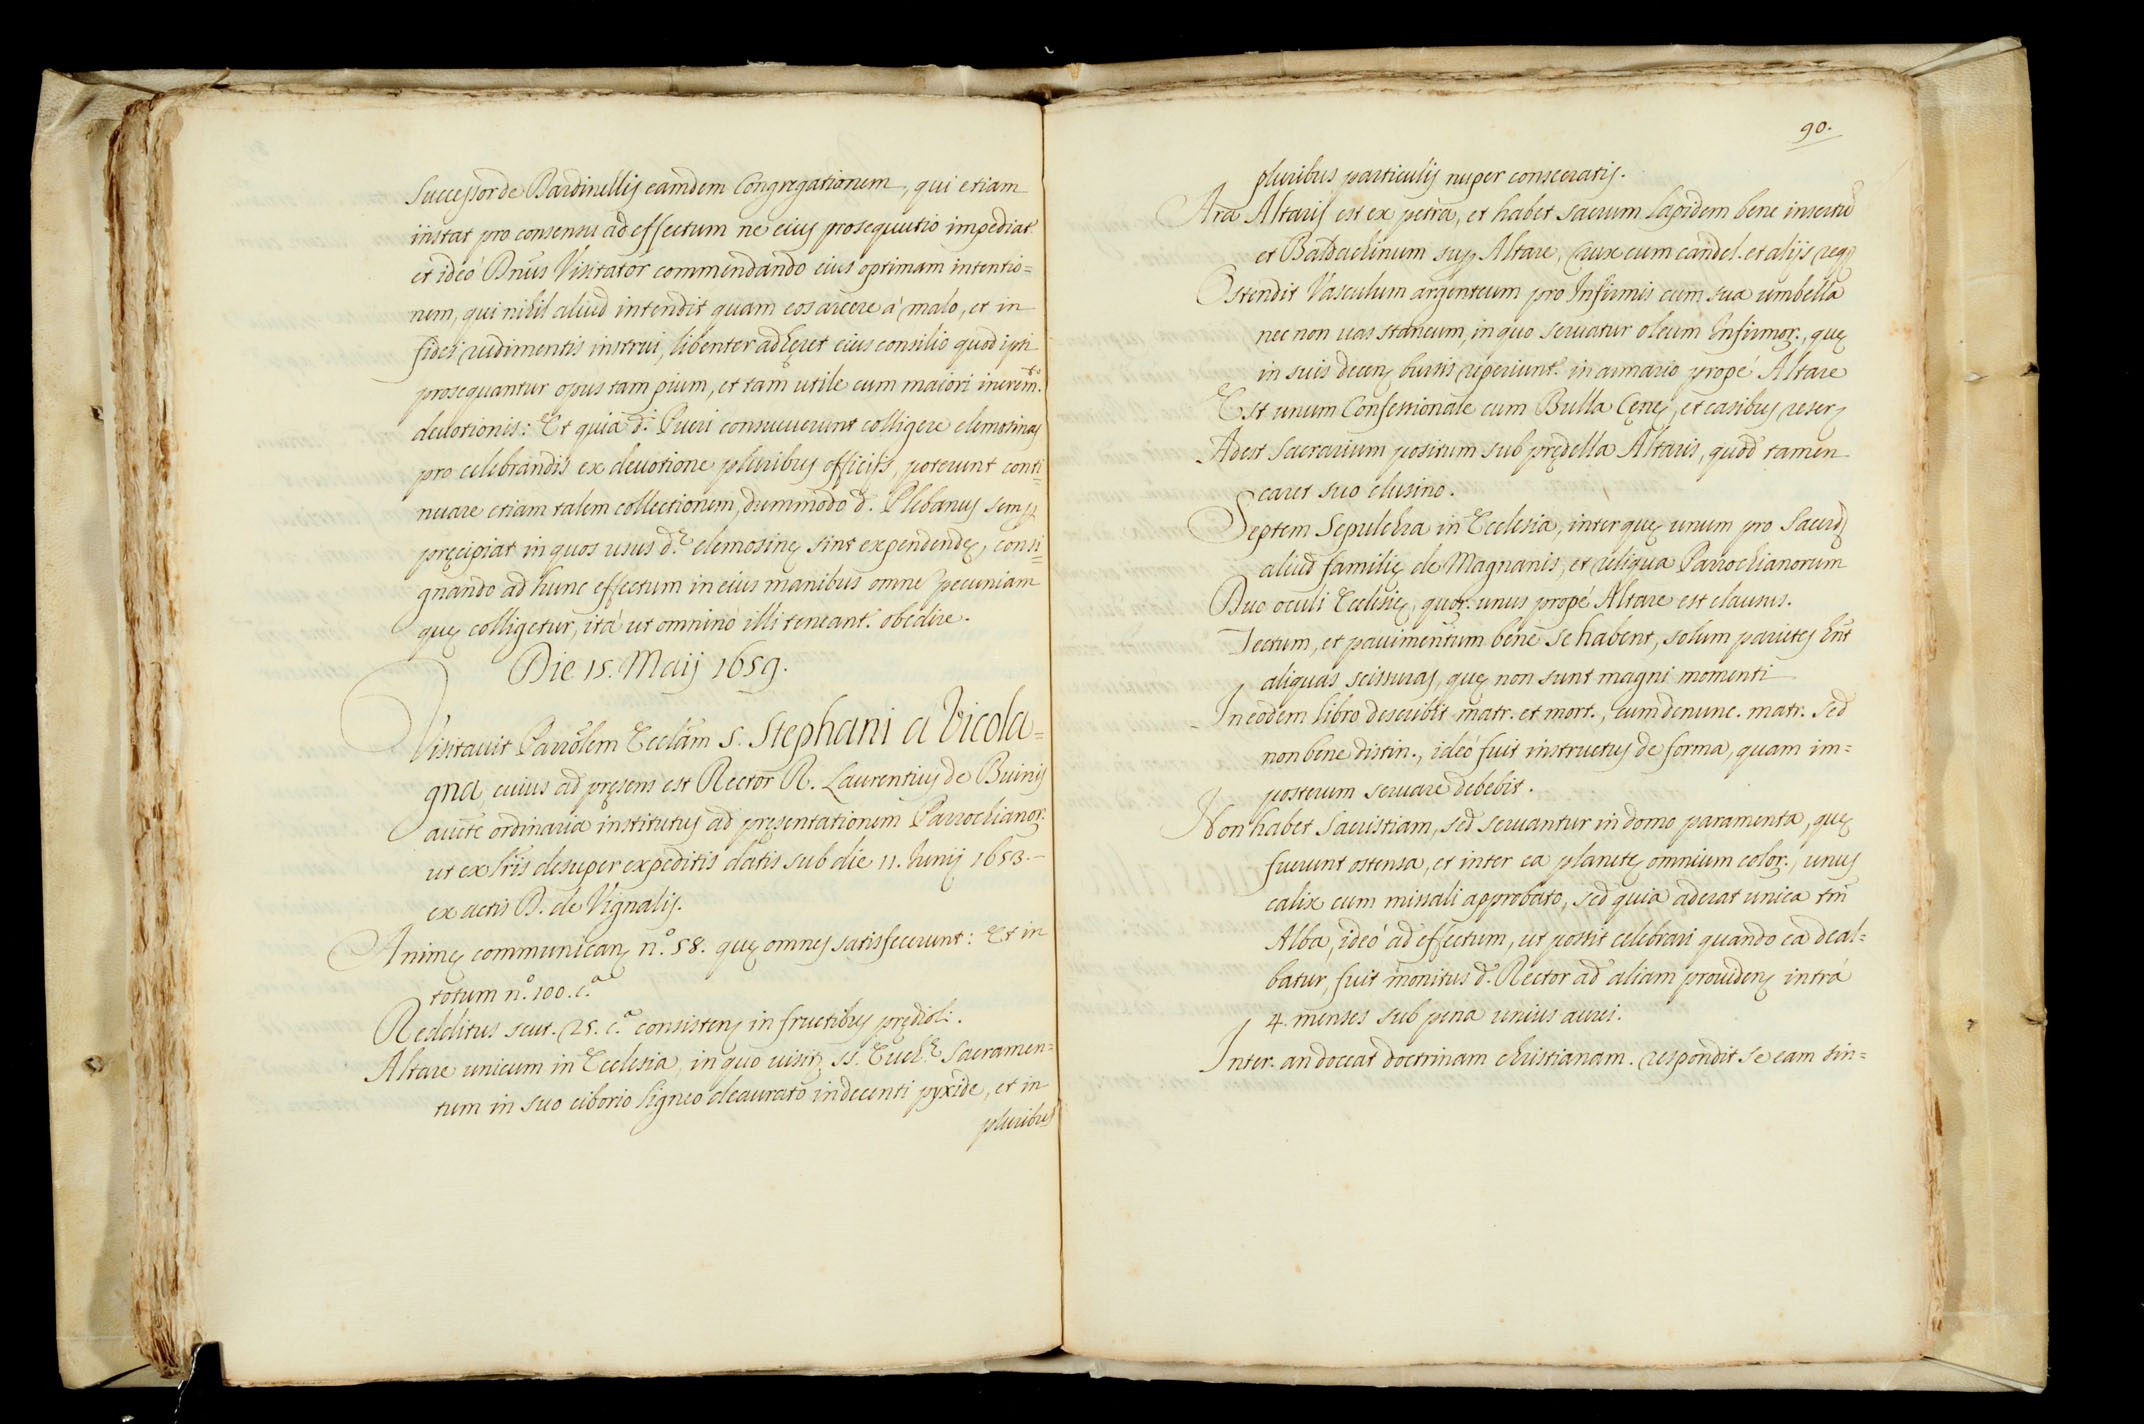 Successor de Bardinellis eamdem Congregationem, qui etiam
instat pro consensu ad effectum ne eius prosequutio impediat.r
et ideò Dnus Visitator commendando eius optimam intentio=
nem, qui nihil aliud intendit quam eos arcere à malo, et in
fidei rudimentis instrui, libenter adhęret eius consilio quod ipsi
prosequantur opus tam pium, et tam utile cum maiori increm.to
deuotionis: Et quia d.i Pueri consueuerunt colligere elemosinas
pro celebrandis ex deuotione pluribus officijs, poterunt conti=
nuare etiam talem collectionem, dummodo d. Plebanus semp
pręcipiat in quos usus d.ę elemosinę sint expendendę, consi=
gnando ad hunc effectum in eius manibus omne pecuniam
quę colligetur, ità ut omninò illi teneant.r obedire.
Die 15. Maij 1659.
Visitauit Parrōlem Ecclām S. Stephani a Vicola=
gna, cuius ad pręsens est Rector R. Laurentius de Buinis
aucte ordinaria institutus ad pręsentationem Parrochianor.
ut ex lris desuper expeditis datis sub die 11. Junij 1653.
ex actis D. de Vignalis.
Animę communican n.o 58. quę omnes satisfecerunt: Et in
totum n.o 100. c.a
Redditus scut. 25. c.a consistens in fructibus prędiol:.
Altare unicum in Ecclesia, in quo uisit SS. Euch.ę Sacramen=
tum in suo ciborio ligneo deaurato indecenti pyxide, et in
pluribus
90.
pluribus particulis nuper consecratis.
Ara Altaris est ex petra, et habet sacrum lapidem bene insertū
et Baldachinum sup Altare, Crux cum candel. et alijs req
Ostendit Vasculum argenteum pro Infirmis cum sua umbella
nec non uas staneum, in quo seruatur oleum Infirmor., quę
in suis decen bursis reperiunt.r in armario propè Altare
Est unum Confessionale cum Bulla Cęnę, et casibus reser
Adest Sacrarium positum sub prędella Altaris, quod tamen
caret suo clusino.
Septem Sepulchra in Ecclesia, inter quę unum pro Sacerd
aliud familię de Magnanis, et reliqua Parrochianorum
Duo oculi Ecclesię, quor. unus propè Altare est clausus.
Tectum, et pauimentum bene se habent, solum parietes hnt
aliquas scissuras, quę non sunt magni momenti
In eodem libro describit matr. et mort., cum denunc. matr. sed
non bene distin., ideò fuit instructus de forma, quam im=
posterum seruare debebit.
Non habet Sacristiam, sed seruantur in domo paramenta, quę
fuerunt ostensa, et inter ea planetę omnium color., unus
calix cum missali approbato, sed quia aderat unica tm̄
Alba, ideò ad effectum, ut possit celebrari quando ea deal=
batur, fuit monitus d. Rector ad aliam prouiden intrà
4. menses sub pena unius aurei.
Inter. an doceat doctrinam christianam. respondit se eam sin=